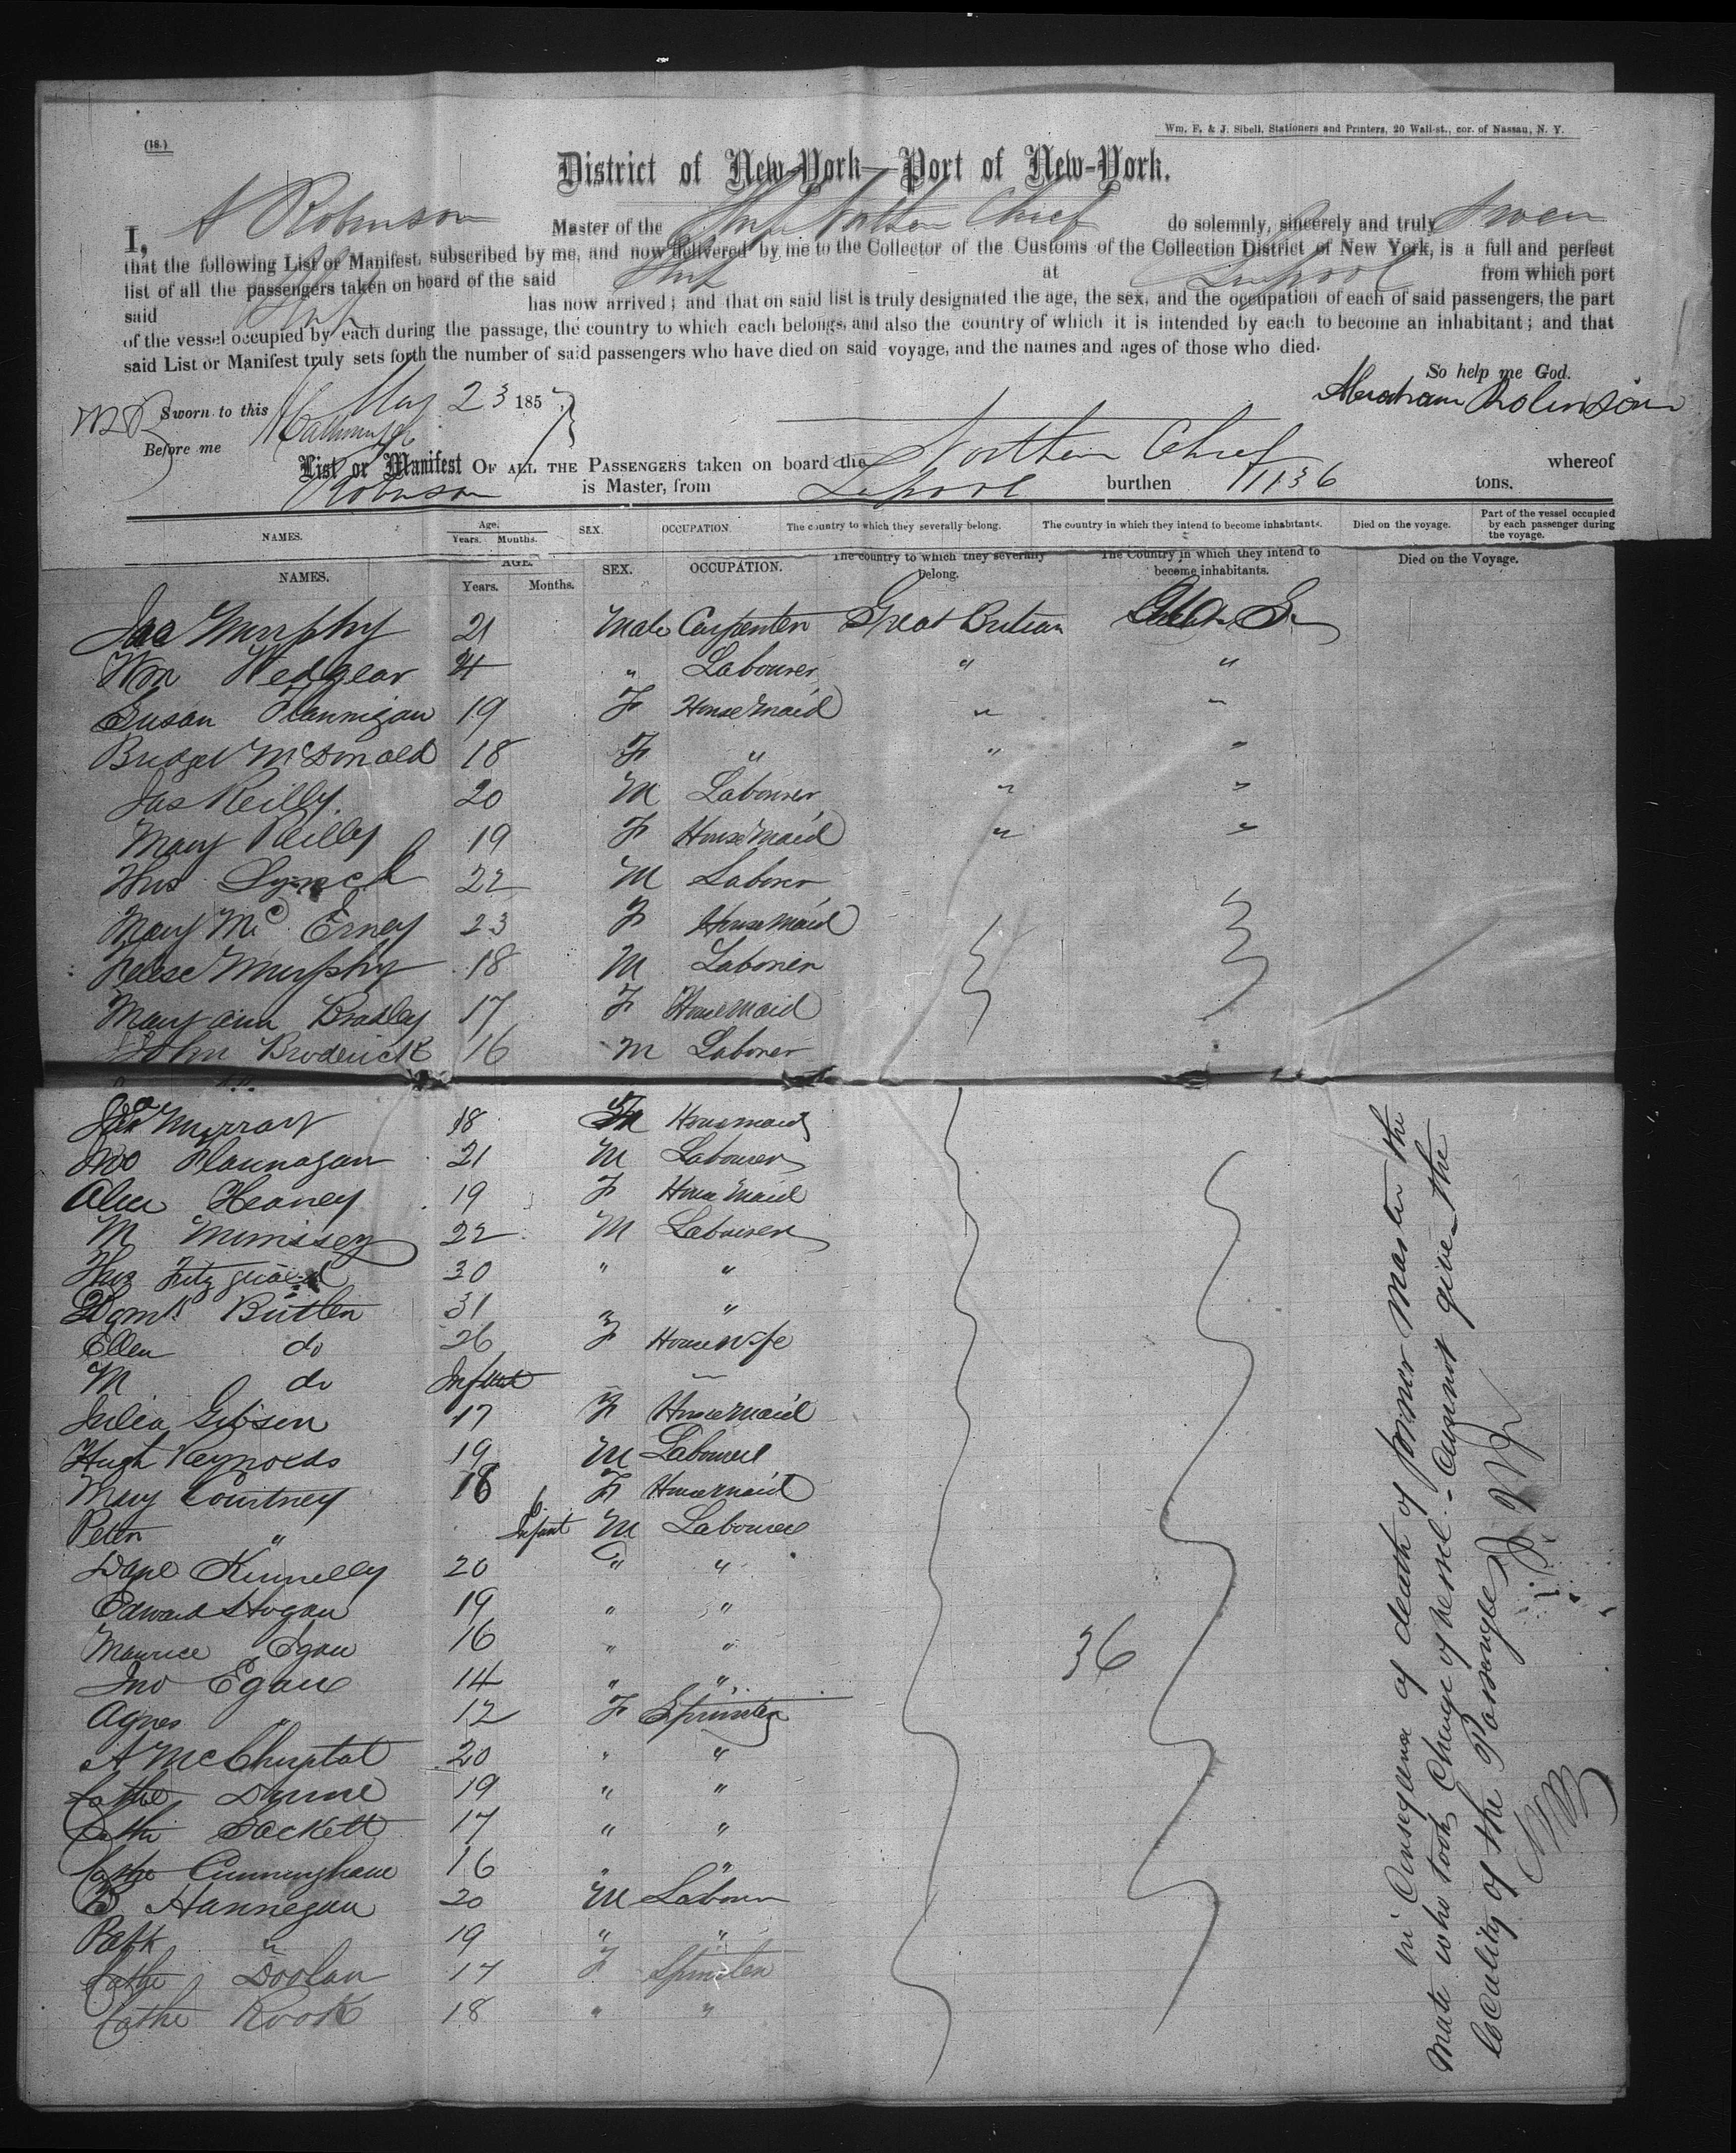 (18.)
Wm. F. & J. Sibell, Stationers and Printers, 20 Wall-st., cor. of Nassau, N. Y.
District of New-York—Port of New-York.
I, A Robinson Master of the Ship Northern Chief do solemnly, sincerely and truly Swear
that the following List or Manifest, subscribed by me, and now delivered by me to the Collector of the Customs of the Collection District of New York, is a full and perfect
list of all the passengers taken on board of the said Ship at Lpool from which port
said Ship has now arrived; and that on said list is truly designated the age, the sex, and the occupation of each of said passengers, the part
of the vessel occupied by each during the passage, the country to which each belongs, and also the country of which it is intended by each to become an inhabitant; and that
said List or Manifest truly sets forth the number of said passengers who have died on said voyage, and the names and ages of those who died.
So help me God.
Sworn to this May 23 1857 Abraham Robinson
Before me
List or Manifest OF ALL THE PASSENGERS taken on board the Northern Chief whereof
Robinson is Master, from Lpool burthen 1136 tons.
NAMES. Age. Years. Months. SEX. OCCUPATION. The country to which they severally belong. The country in which they intend to become inhabitants. Died on the voyage. Part of the vessel occupied by each passenger during the voyage.
NAMES. AGE. Years. Months. SEX. OCCUPATION. The country to which they severally belong. The Country in which they intend to become inhabitants. Died on the Voyage.
Jas Murphy 21 Male Carpenter Great Britain
Wm Hedgear 21 " Labourer " "
Susan Flannigan 19 F House Maid " "
Bridget McDonald 18 F " " "
Jas Reilly 20 M Labourer " "
Mary Reilly 19 F House Maid " "
Thos Lynch 22 M Laborer
Mary Mc Erney 23 F House Maid
Murphy 18 M Laborer
Mary Ann Bradley 17 F House Maid
John Broderick 16 M Laborer
Murray 18 Housmaid
Jno Flannagan 21 M Labourer
Alice Heaney 19 F House Maid
M Morrissey 22 M Labourer
Thos Fitzgerald 30 " "
Domk Butler 31 " "
Ellen do 26 F Housewife
M do Infant
Julia Gibson 17 F House maid
Hugh Reynolds 19 M Labourer
Mary Courtney 18 F Housemaid
Peter " Infant M Labourer
Danl Kinnelly 20 " "
Edward Hogan 19 " "
Maurice Egan 16 " "
Jno Egan 14 " "
Agnes " 12 F Spinster
A 20 " "
Cathe Dunne 19 " "
Cathe Sackett 17 " "
Cathe Cunningham 16 " "
B Hannegan 20 M Labourer
Patk " 19 " "
Cathe Doolan 17 F Spinster
Cathe Rook 18 " "
36
In Consequence of death of former Master the
Mate who took Charge of Vessel - Cannot give the
locality of the Passengers